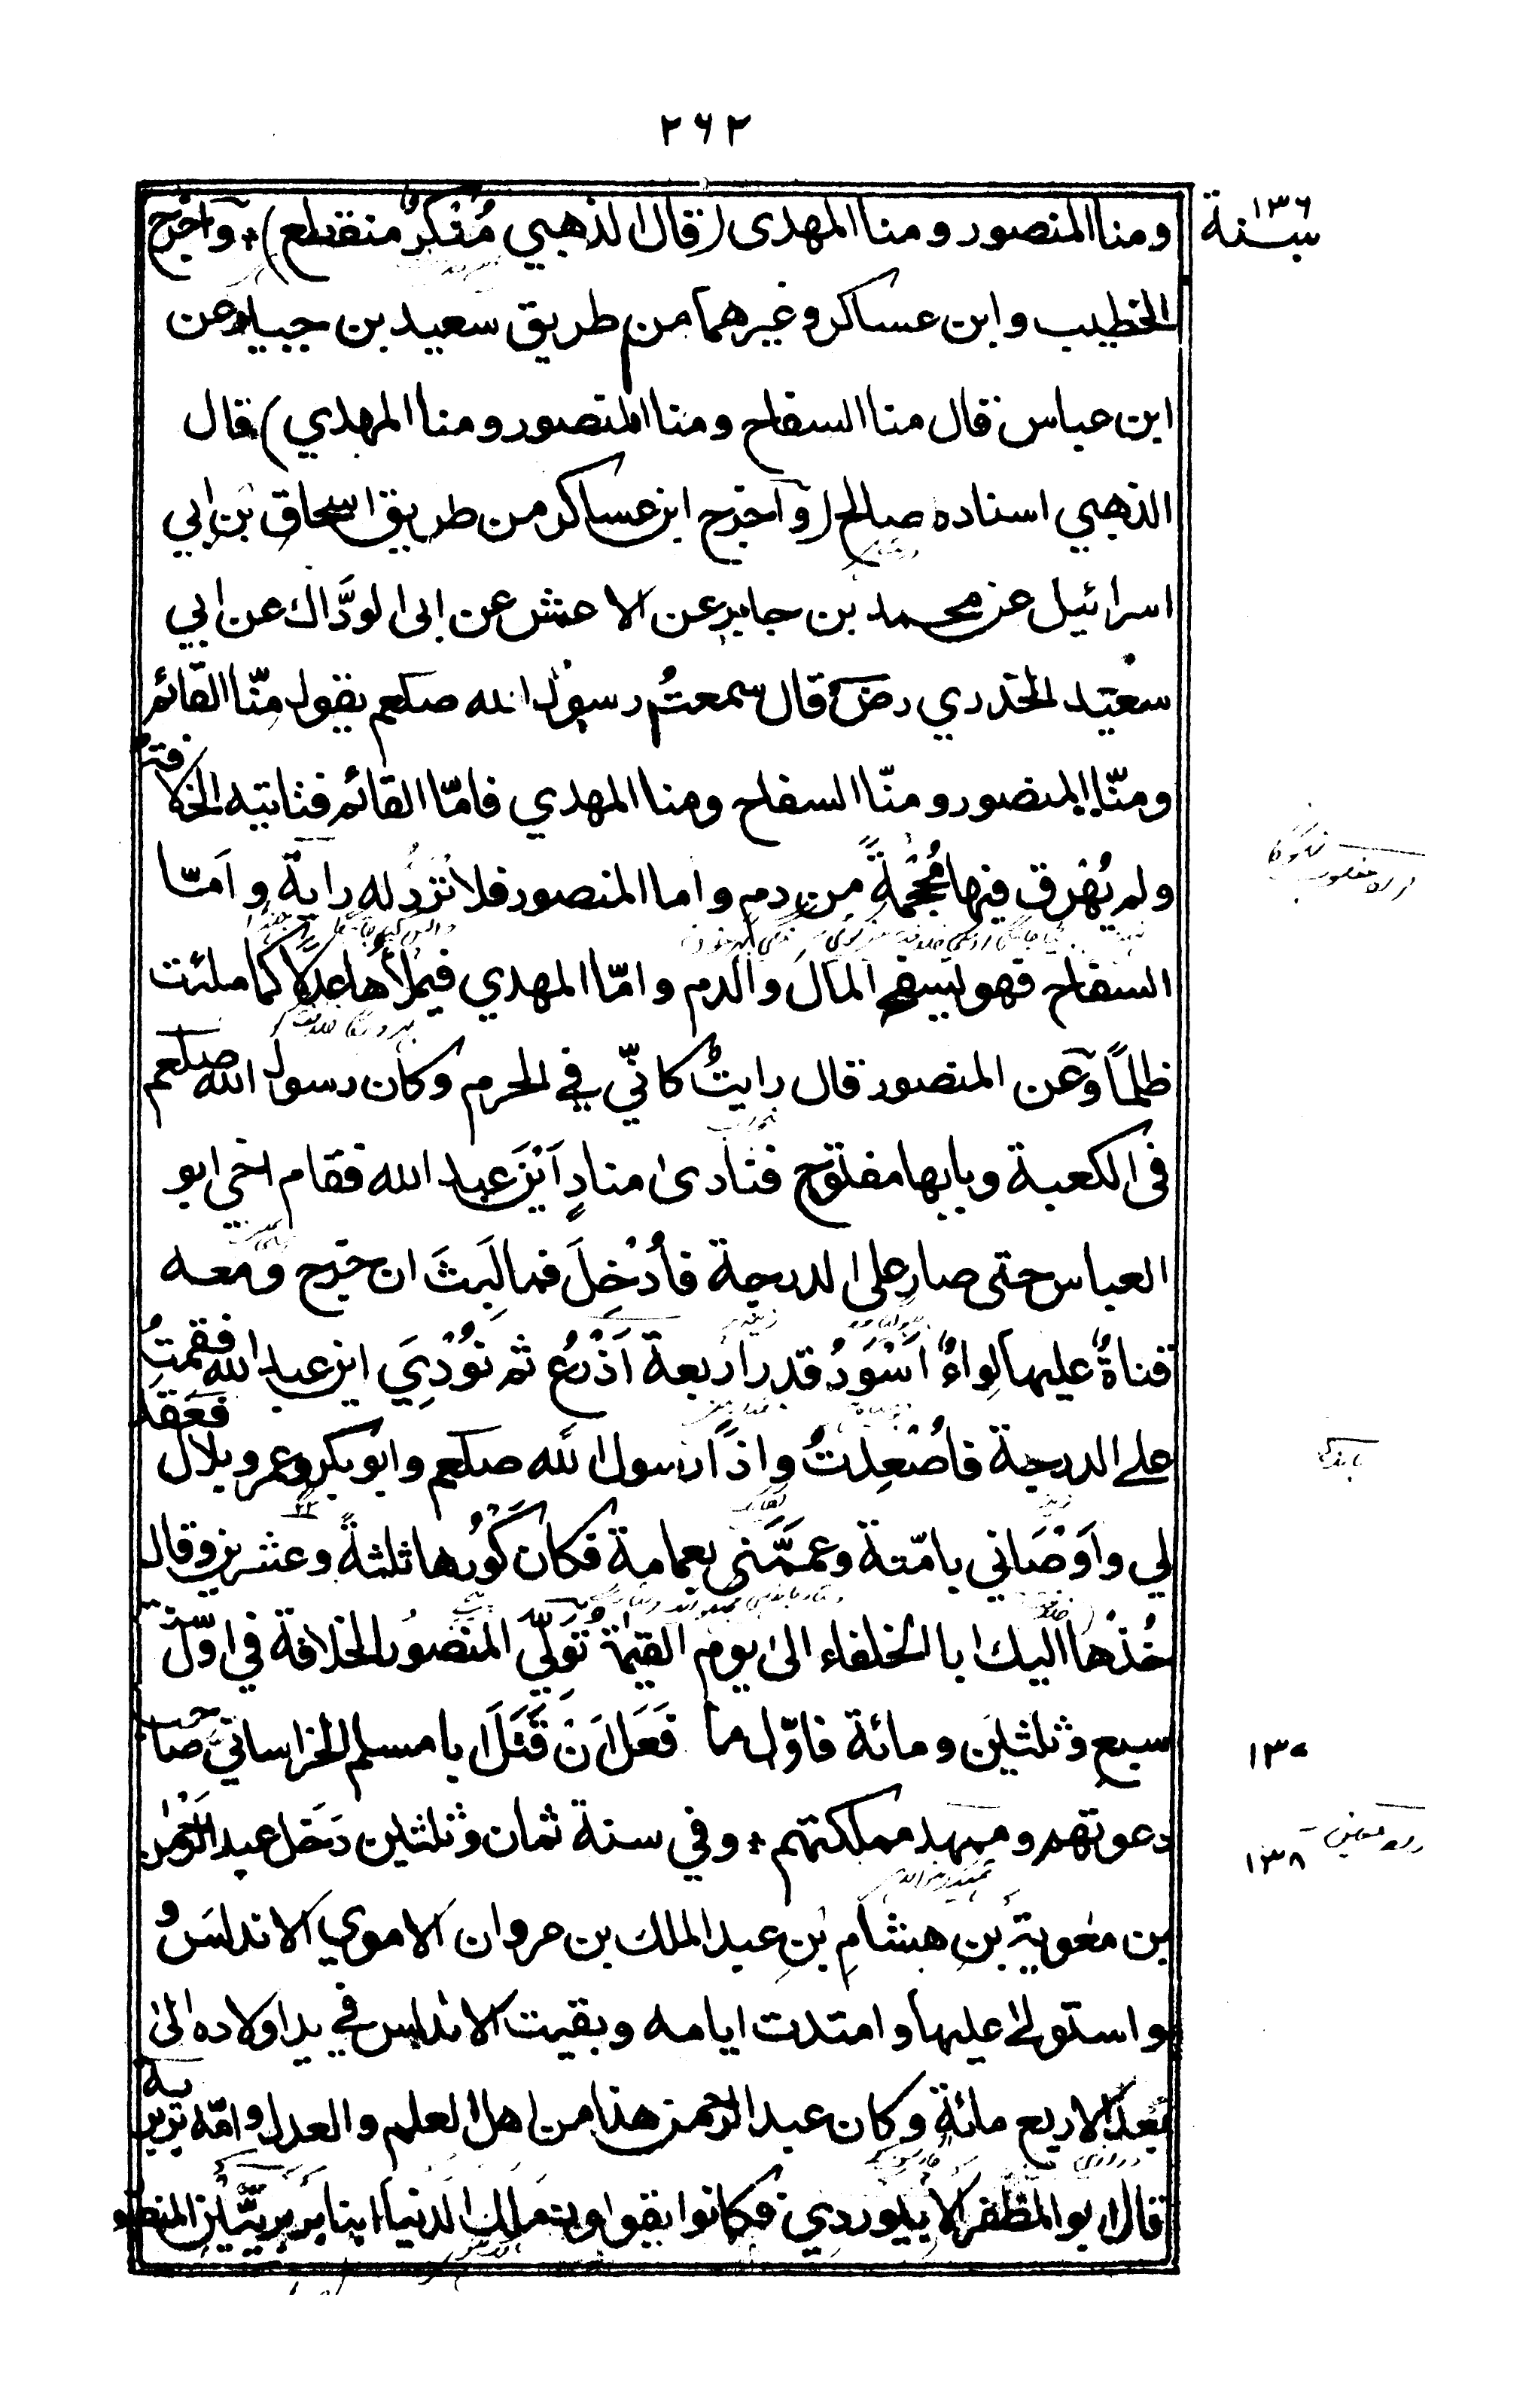 ٢٦٢
سنة ١٣٦
ومنا المنصور ومنا المهدى (قال الذهبي مُنْكَرٌ منقطع) * وآخرج
الخطيب وابن عساكر وغيرهما من طريق سعيد بن جبير عن
ابن عباس قال منا السفاح ومنا المنصور ومنا المهدي) قال
الذهبي اسناده صالح (وآخرج ابن عساكر من طريق اسحاق بن ابي
اسرائيل عن محمد بن جابر عن الاعمش عن ابى الودَّاك عن ابي
سعيد الخدري رضـ قال سمعتُ رسول الله صلعم يقول منّا القائم
ومنّا المنصور ومنّا السفاح ومنا المهدي فامّا القائم فتاتيه الخلافة
ولم يُهْرَق فيها مُحْجَمَةً من دم واما المنصور فلا تُرَدُّ له راية وآمّا
السفاح فهو يسفح المال والدم وامّا المهدي فيملأها عدلًا كما ملئت
ظلمًا وآعن المنصور قال رايتُ كانّي في الحرم وكان رسول الله صلعم
فى الكعبة وبابها مفتوح فنادى منادٍ اَيْنَ عبد الله فقام اخي ابو
العباس حتى صار على الدرجة فأُدْخِلَ فما لَبِثَ ان خرج ومعه
قناةٌ عليها لِواءٌ اَسْوَدُ قدر اربعة اَذْرُع ثم نُوْدِيَ اين عبد الله فقمتُ
على الدرجة فأُصْعِدتُ واذًا رسول الله صلعم وابو بكر وعمر وبلال فعَقَدَ
لي واَوْصَاني بامّته وعمَّمَنى بعمامة فكان كَوْرُها ثلثةً وعشرين وقال
خُذْها اليك ابا الخلفاء الى يوم القيمة تَوَلّىَ المنصورُ الخلافة في اوّل سنة
سبع وثلثين ومائة فاوّل ما فَعَلَ اَنْ قَتَلَ ابا مسلم الخراساني صاحب
١٣٧
دعوتهم وممهد مملكتهم * وفي سنة ثمان وثلثين دَخَل عبد الرحمن
١٣٨
بن معٰوية بن هشامِ بنِ عبد الملك بن مروان الاموي الاندلسَ
واستولى عليها وامتدت ايامه وبقيت الاندلس في يد اولاده الى
بعد الاربع مائة وكان عبد الرحمن هذا من اهل العلم والعدل وامّه بربرية
قال ابو المظفر الابيوردي فكانوا يقولون مَلَك الدنيا ابنا بربريَّتَيْنِ المنصو